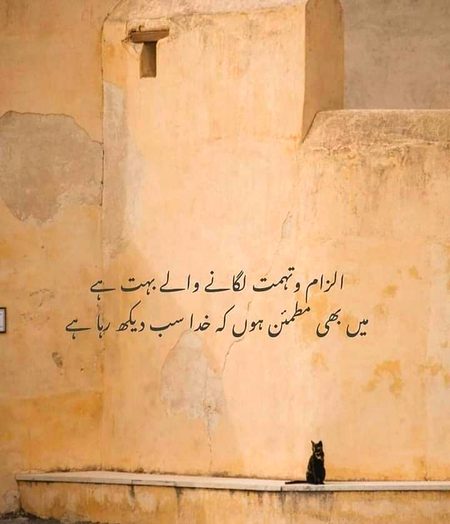 الزام و تہمت لگانے والے بہت ہے
میں بھی مطمئن ہوں کہ خدا سب دیکھ رہا ہے